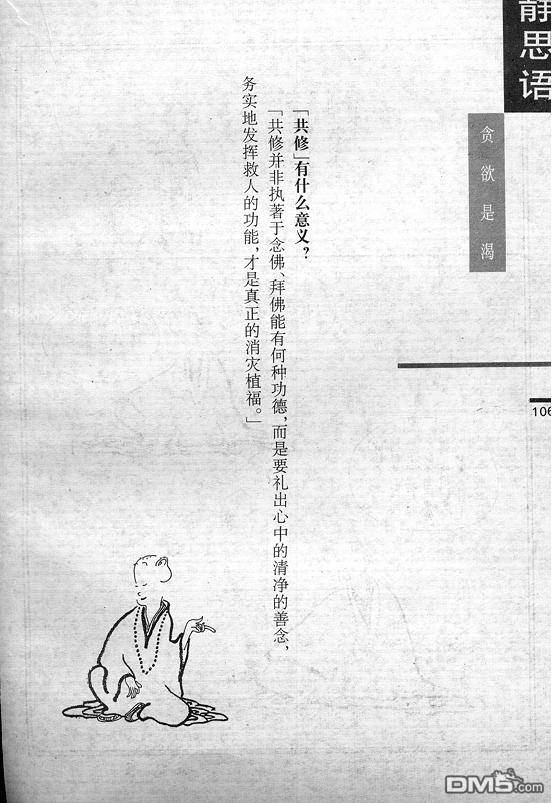 静思语
贪欲是渴
106
「共修」有什么意义？
「共修并非执著于念佛、拜佛能有何种功德，而是要礼出心中的清净的善念，
务实地发挥救人的功能，才是真正的消灾植福。」
DM5.com